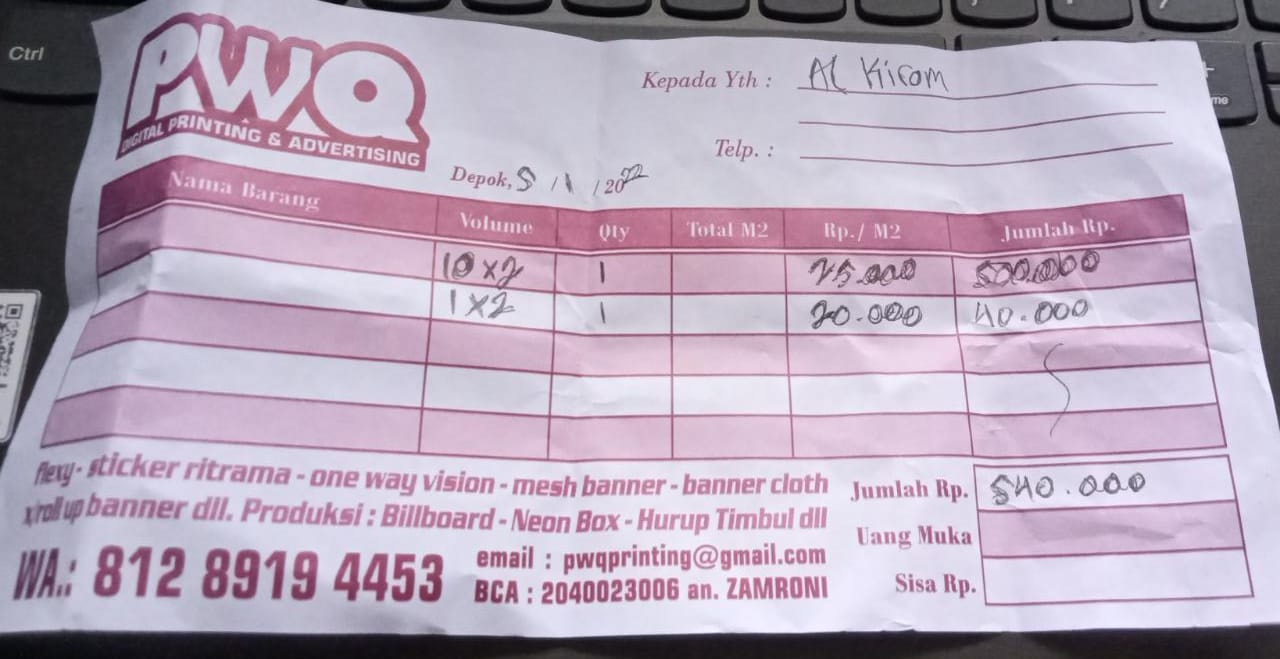 Ctrl
PWQ
DIGITAL PRINTING & ADVERTISING
Kepada Yth : Al Kirom
Telp. :
Depok, 5 / 1 / 2022
Nama Barang Volume Qty Total M2 Rp./ M2 Jumlah Rp.
10 x 2 1 25.000 500.000
1 x 2 1 20.000 40.000
flexy - sticker ritrama - one way vision - mesh banner - banner cloth
x/roll up banner dll. Produksi : Billboard - Neon Box - Hurup Timbul dll
Jumlah Rp. 540.000
Uang Muka
Sisa Rp.
WA.: 812 8919 4453
email : pwqprinting@gmail.com
BCA : 2040023006 an. ZAMRONI